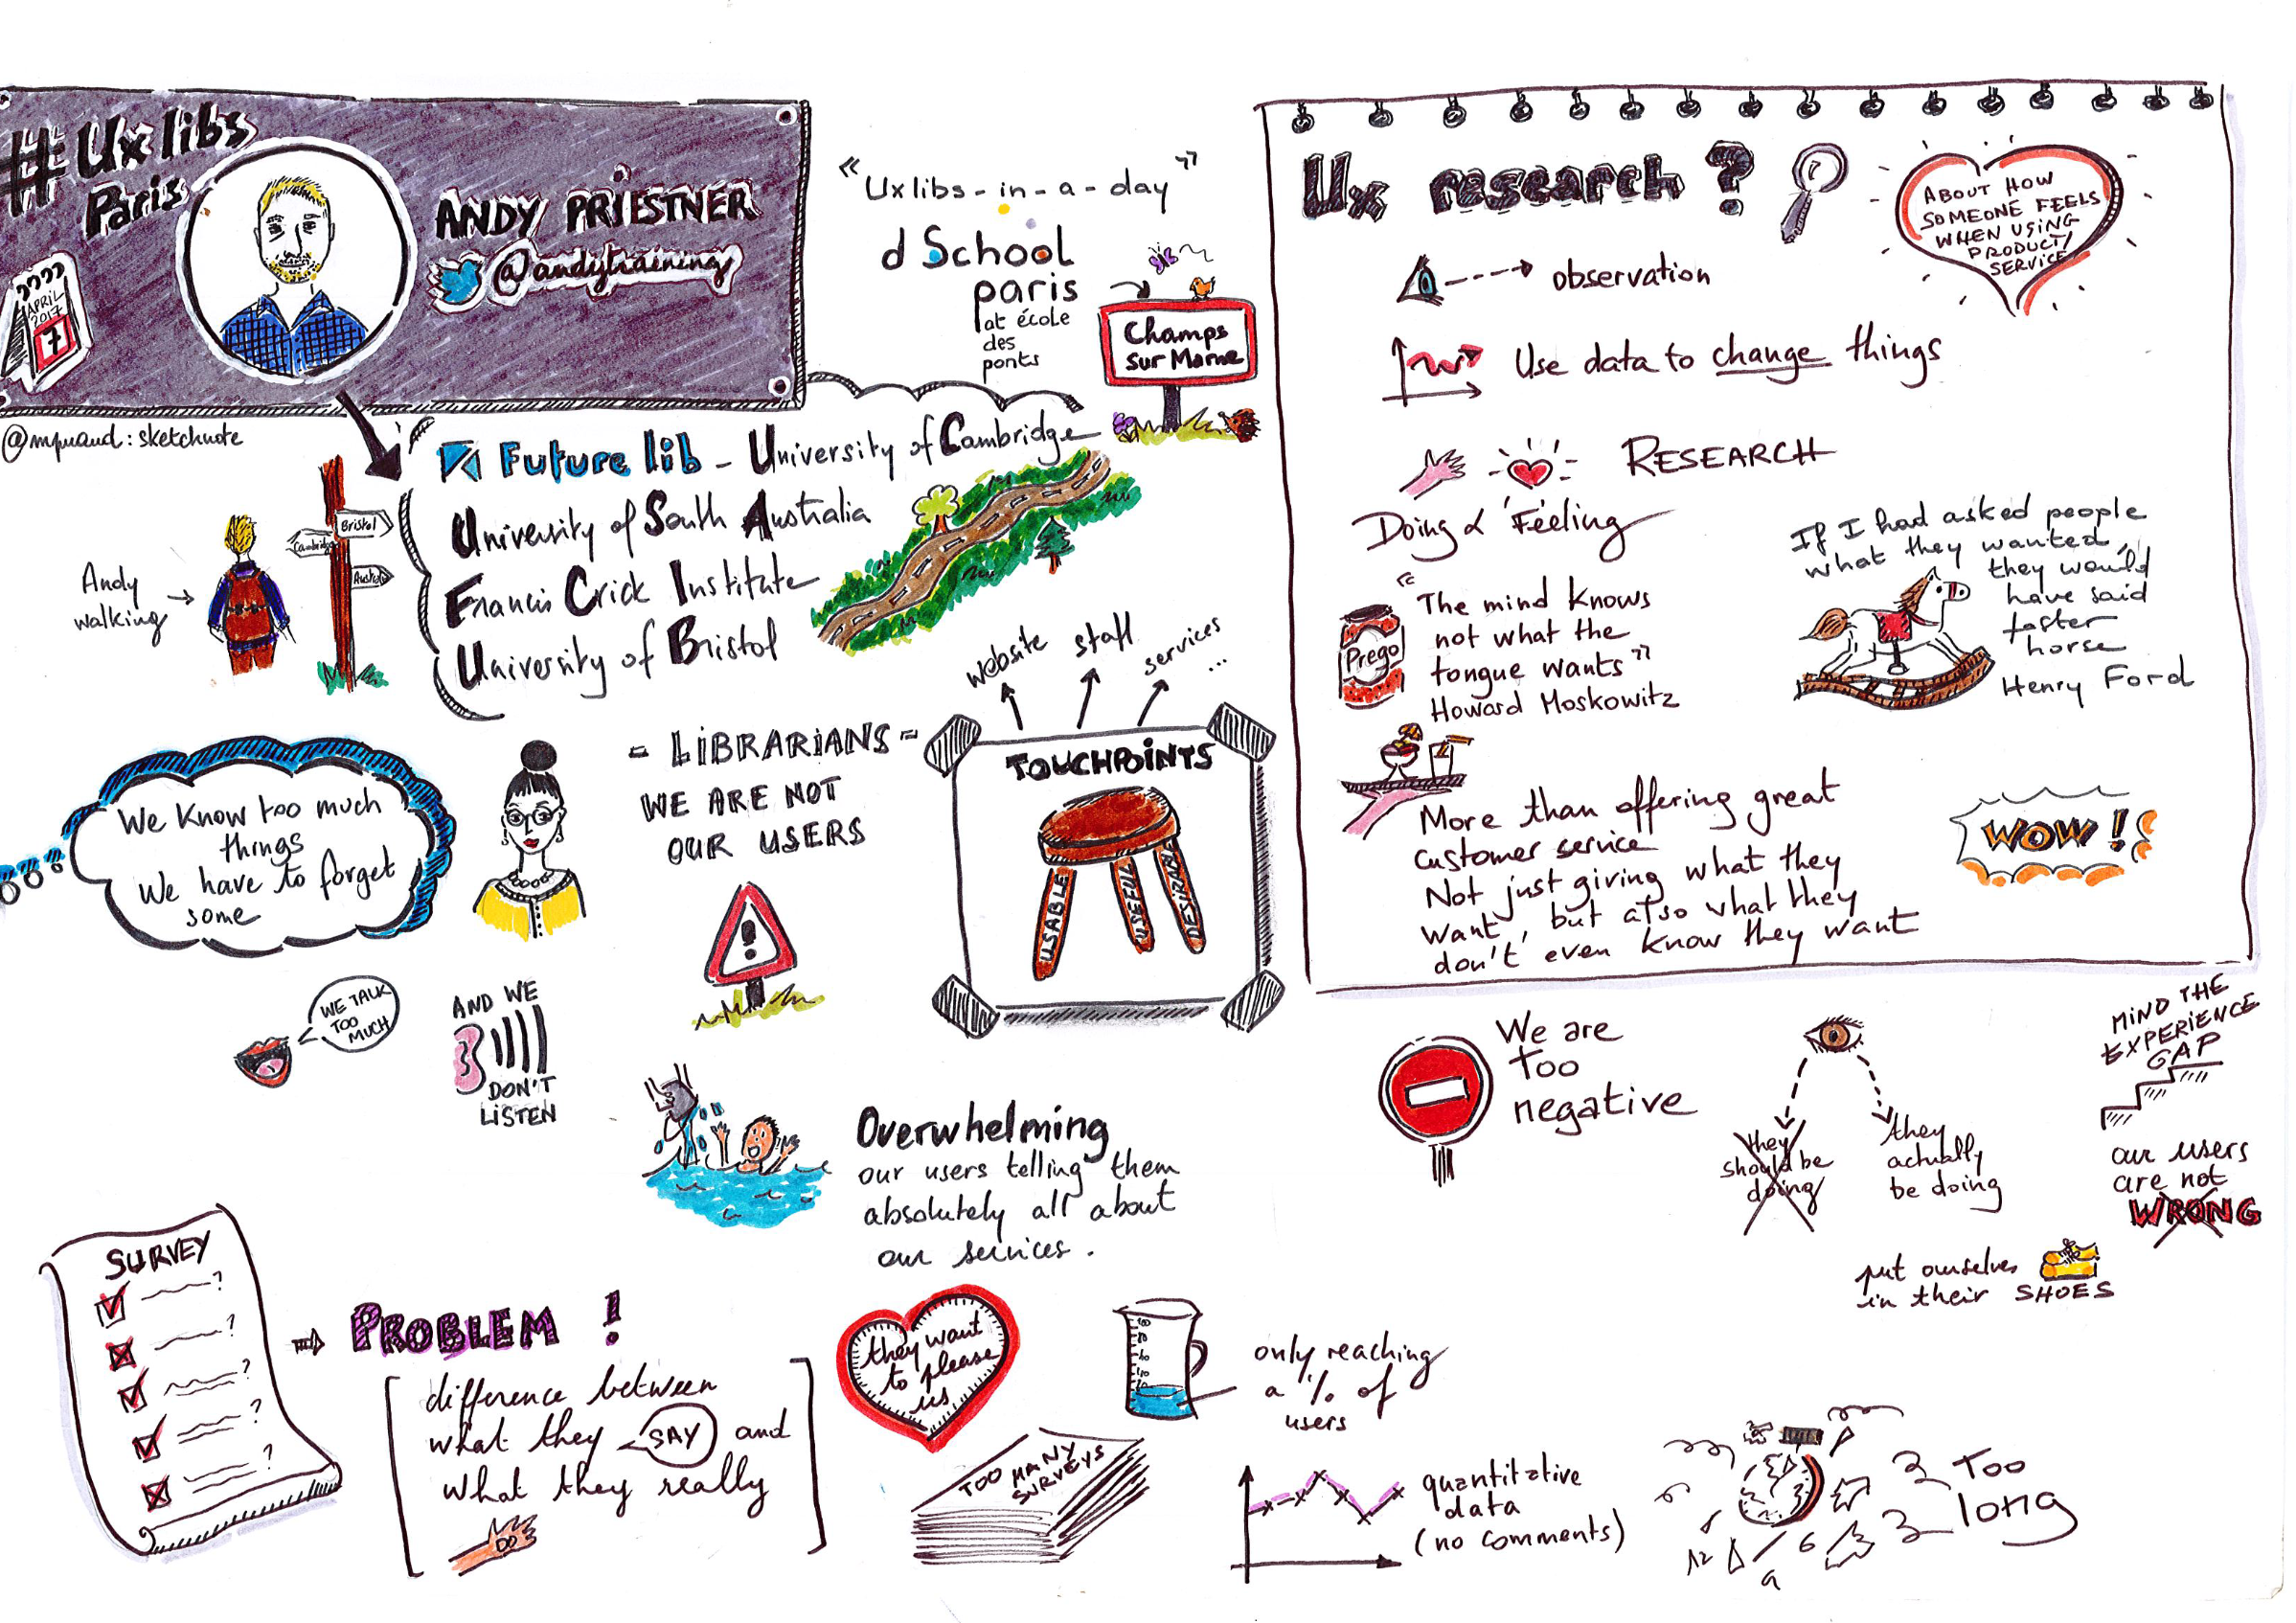 #Uxlibs
Paris
APRIL
2017
7
ANDY PRIESTNER
@andytraining
@mpuaud: sketchnote
"Uxlibs-in-a-day"
d School
paris
at école
des
ponts
Champs
sur Marne
Future lib - University of Cambridge
University of South Australia
Francis Crick Institute
University of Bristol
Andy
walking
Bristol
Cambridge
Austral
We know too much
things
We have to forget
some
= LiBRARiANS =
WE ARE NOT
OUR USERS
website
staff
services
...
TOUCHPOiNTS
USABLE
USEFUL
DESIRABLE
WE TALK
TOO
MUCH
AND WE
DON'T
LiSTEN
Overwhelming
our users telling them
absolutely all about
our services.
Ux research ?
ABOUT HOW
SOMEONE FEELS
WHEN USING
PRODUCT/
SERVICE
observation
Use data to change things
RESEARCH
Doing & Feeling
Prego
"The mind knows
not what the
tongue wants"
Howard Moskowitz
If I had asked people
what they wanted,
they would
have said
faster
horse
Henry Ford
More than offering great
customer service
Not just giving what they
want, but also what they
don't even know they want
WOW !
We are
too
negative
they
should be
doing
they
actually
be doing
MIND THE
EXPERIENCE
GAP
our users
are not
WRONG
put ourselves
in their SHOES
SURVEY
?
?
?
?
?
PROBLEM !
difference between
what they SAY and
what they really
DO
they want
to please
us
TOO MANY
SURVEYS
only reaching
a % of
users
quantitative
data
(no comments)
12
9
6
Too
long